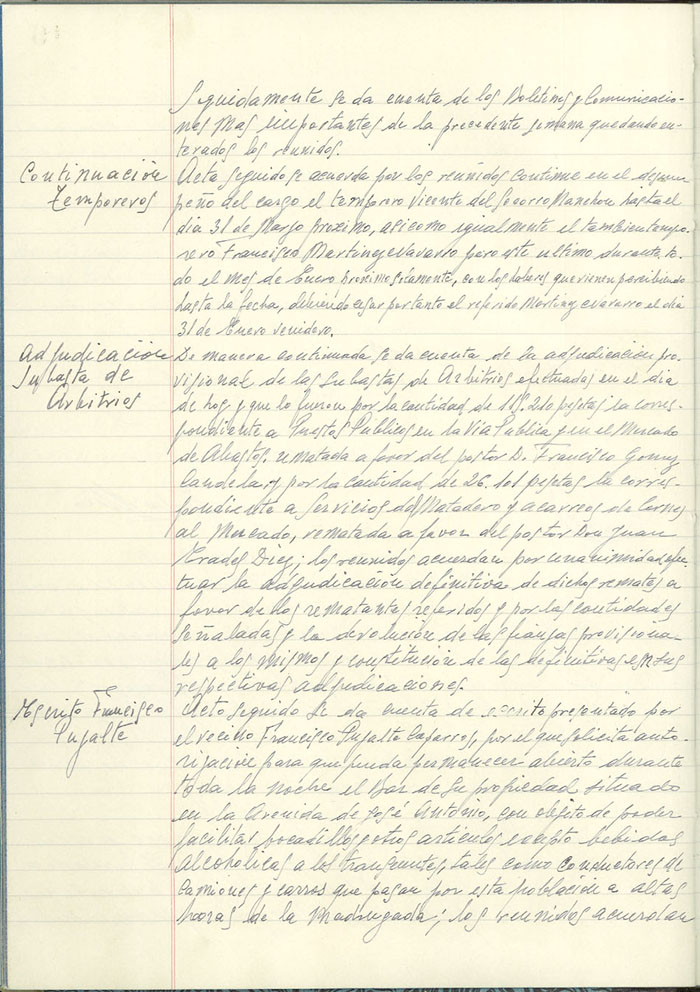 Seguidamente se da cuenta de los Boletines y Comunicacio-
nes mas importantes de la precedente semana quedando en-
terados los reunidos.
Continuación
temporeros
Acto seguido se acuerda por los reunidos continue en el desem-
peño del cargo el temporero Vicente del Socorro Manchon hasta el
dia 31 de Marzo proximo, asi como igualmente el tambien tempo-
rero Francisco Martinez Navarro pero este ultimo durante to-
do el mes de Enero proximo solamente, con los haberes que vienen percibiendo
hasta la fecha, debiendo cesar por tanto el referido Martinez Navarro el dia
31 de Enero venidero.
Adjudicación
Subasta de
Arbitrios
De manera continuada se da cuenta de la adjudicación pro-
visional de las subastas de Arbitrios efectuadas en el dia
de hoy y que lo fueron por la cantidad de pesetas la corres-
pondiente a Puestos Publicos en la Via Publica y en el Mercado
de Abastos, rematada a favor del postor D. Francisco Gomez
Candela, y por la cantidad de 26.101 pesetas la corres-
pondiente a Servicios del Matadero y acarreos de Carnes
al Mercado, rematada a favor del postor Don Juan
Prades Diez; los reunidos acuerdan por unanimidad efec-
tuar la adjudicación definitiva de dichos remates a
favor de los rematantes referidos y por las cantidades
señaladas y la devolución de las fianzas provisiona-
les a los mismos y constitución de las definitivas en sus
respectivas adjudicaciones.
Escrito Francisco
Pujalte
Acto seguido se da cuenta de escrito presentado por
el vecino Francisco Pujalte, por el que solicita auto-
rización para que pueda permanecer abierto durante
toda la noche el Bar de su propiedad situado
en la Avenida de José Antonio, con objeto de poder
facilitar bocadillos y otros articulos excepto bebidas
alcoholicas a los transeuntes, tales como conductores de
camiones y carros que pasan por esta población a altas
horas de la madrugada; los reunidos acuerdan